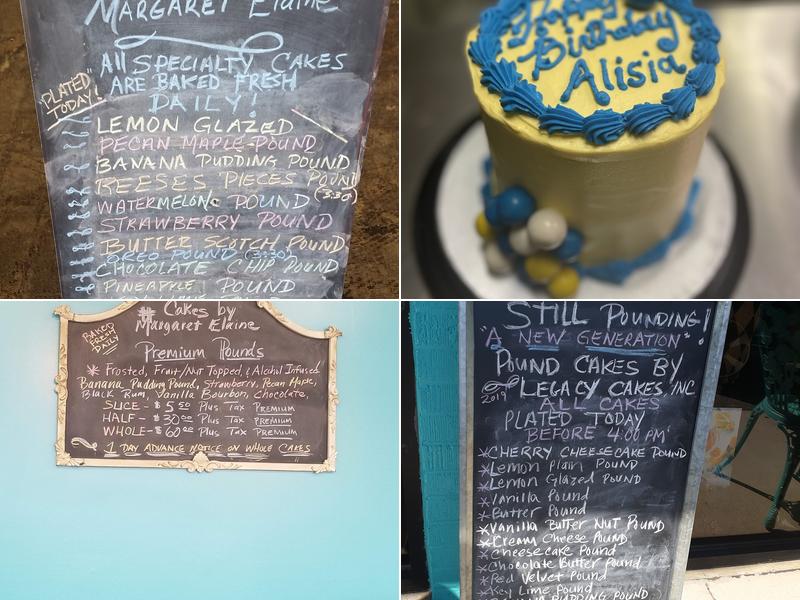 MARGARET Elaine
All SPECIALTY CAKES
ARE BAKED FRESH
DAILY!
"PLATED"
TODAY!
LEMON GLAZED
PECAN MAPLE POUND
BANANA PUDDING POUND
REESES PIECES POUND
(3:30)
WATERMELON POUND
STRAWBERRY POUND
BUTTER SCOTCH POUND
OREO POUND (3:30)
CHOCOLATE CHIP POUND
PINEAPPLE POUND
Happy
Birthday
Alisia
Cakes by
Margaret Elaine
BAKED
FRESH
DAILY
Premium Pounds
* Frosted, Fruit/Nut Topped, & Alcohol Infused
Banana Pudding Pound, Strawberry, Pecan Maple,
Black Rum, Vanilla Bourbon, Chocolate,
SLICE - $5.50 Plus Tax PREMIUM
HALF - $30.00 Plus Tax PREMIUM
WHOLE - $60.00 Plus Tax PREMIUM
1 DAY ADVANCE NOTICE ON WHOLE CAKES
STILL POUNDING!
"A NEW GENERATION"
POUND CAKES BY
LEGACY CAKES, INC
2019
ALL CAKES
PLATED TODAY
BEFORE 4:00 PM
*CHERRY CHEESECAKE POUND
*Lemon Plain POUND
*Lemon Glazed POUND
*Vanilla Pound
*Butter Pound
*Vanilla Butter Nut POUND
*Cream Cheese POUND
*Cheesecake Pound
*Chocolate Butter Pound
*Red Velvet Pound
*Key Lime Pound
PUDDING POUND